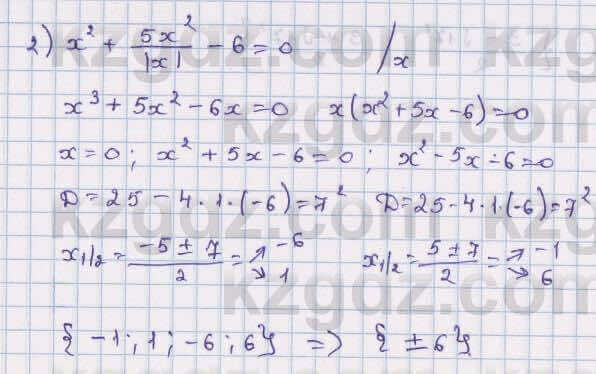 2) x² + 5x²/|x| - 6 = 0 /x
x³ + 5x² - 6x = 0 x(x² + 5x - 6) = 0
x = 0; x² + 5x - 6 = 0; x² - 5x - 6 = 0
D = 25 - 4·1·(-6) = 7² D = 25 - 4·1·(-6) = 7²
x1/2 = (-5 ± 7)/2 = ↗ -6 ↘ 1 x1/2 = (5 ± 7)/2 = ↗ -1 ↘ 6
{ -1; 1; -6; 6 } => { ± 6 }
kzgdz.com